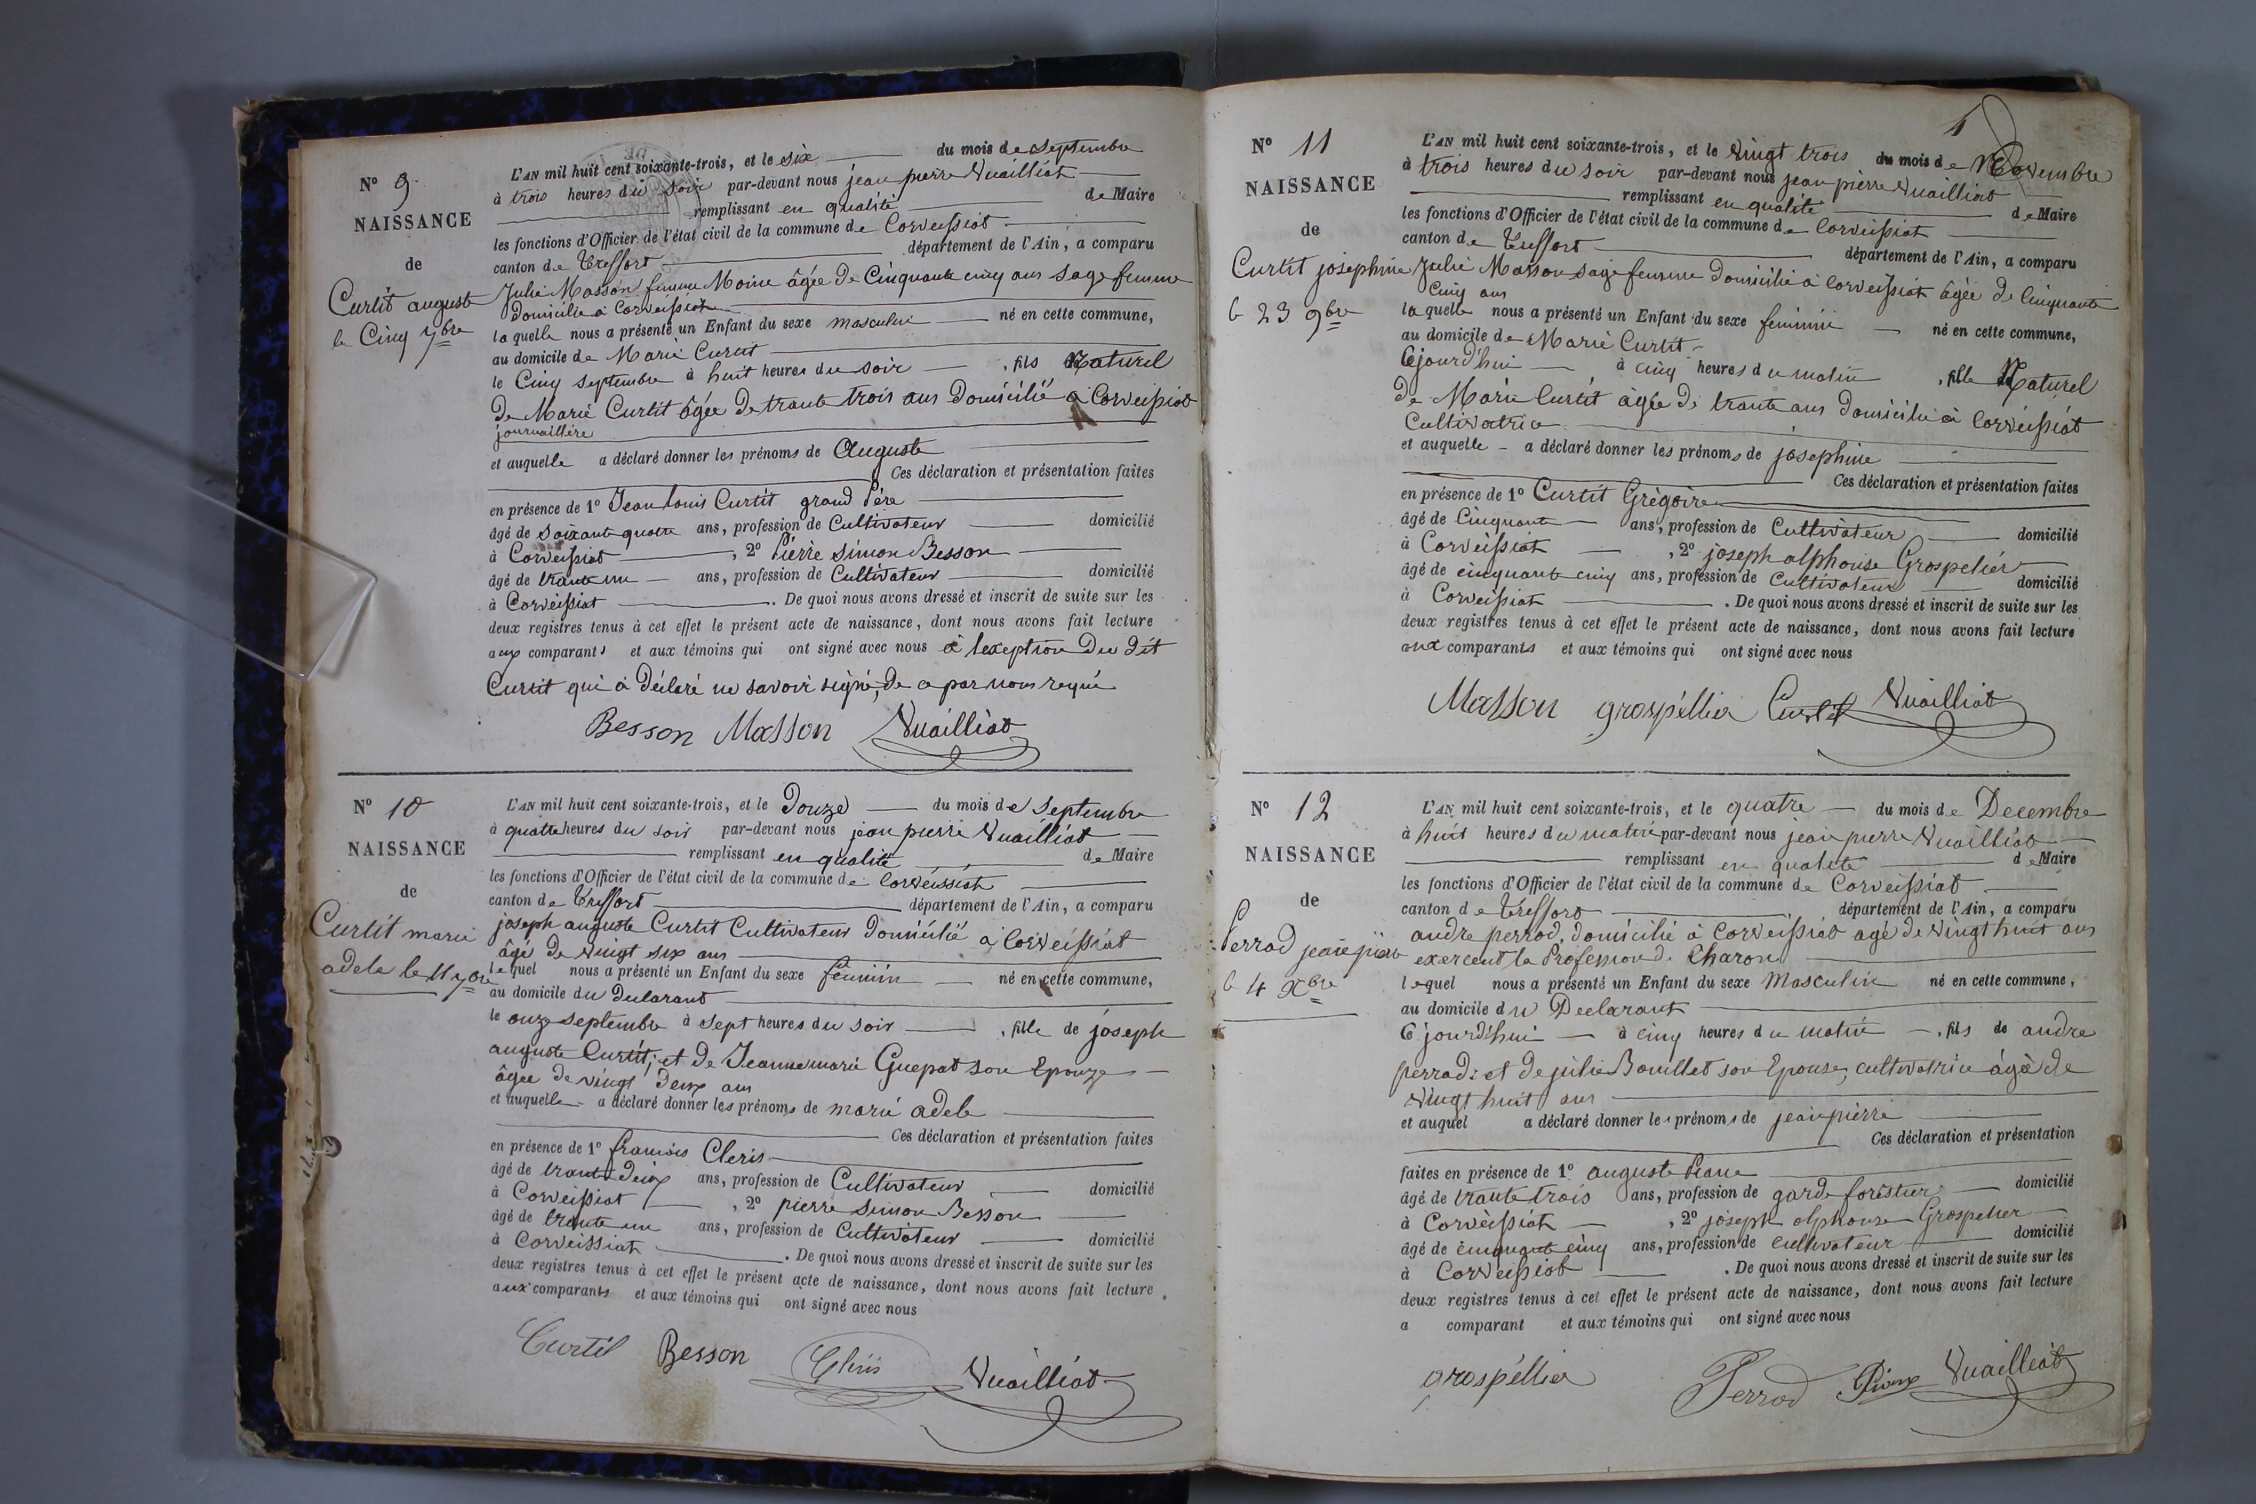 N° 9
NAISSANCE
de
Curtit auguste
le Cinq 7bre
L'AN mil huit cent soixante-trois, et le six du mois de Septembre
à trois heures du soir par-devant nous jean pierre Vuailliat
remplissant en qualité de Maire
les fonctions d'Officier de l'état civil de la commune de Corveissiat
canton de Treffort département de l'Ain, a comparu
Julie Masson femme Moine âgée de Cinquante cinq ans sage femme
domicilié à Corveissiat
laquelle nous a présenté un Enfant du sexe masculin né en cette commune,
au domicile de Marie Curtit
le Cinq septembre à huit heures du soir , fils Naturel
de Marie Curtit âgée de trante trois ans Domicilié à Corveissiat
journaillére
et auquelle a déclaré donner les prénoms de Auguste
Ces déclaration et présentation faites
en présence de 1° Jean Louis Curtit grand Père
âgé de soixante quatre ans, profession de Cultivateur domicilié
à Corveissiat , 2° Pierre Simon Besson
âgé de trante un ans, profession de Cultivateur domicilié
à Corveissiat . De quoi nous avons dressé et inscrit de suite sur les
deux registres tenus à cet effet le présent acte de naissance, dont nous avons fait lecture
aux comparants et aux témoins qui ont signé avec nous à lexeption du dit
Curtit qui à déclaré ne savoir signé, de a par nous requi
Besson Masson Vuailliat
N° 10
NAISSANCE
de
Curtit marie
adele le 11 7bre
L'AN mil huit cent soixante-trois, et le Douze du mois de Septembre
à quatte heures du soir par-devant nous jean pierre Vuailliat
remplissant en qualité de Maire
les fonctions d'Officier de l'état civil de la commune de Corveissiat
canton de Treffort département de l'Ain, a comparu
joseph auguste Curtit Cultivateur domicilié à Corveissiat
âgé de vingt six ans
lequel nous a présenté un Enfant du sexe féminin né en cette commune,
au domicile du Declarant
le onze septembre à sept heures du soir , fille de joseph
auguste Curtit; et de Jeanne marie Guepat son Epouze
âgée de vingt deux ans
et auquelle a déclaré donner les prénoms de marie adele
Ces déclaration et présentation faites
en présence de 1° francois Cleris
âgé de trante deux ans, profession de Cultivateur domicilié
à Corveissiat , 2° pierre simon Besson
âgé de trante un ans, profession de Cultivateur domicilié
à Corveissiat . De quoi nous avons dressé et inscrit de suite sur les
deux registres tenus à cet effet le présent acte de naissance, dont nous avons fait lecture
aux comparants et aux témoins qui ont signé avec nous
Curtil Besson Cléris Vuailliat
N° 11
NAISSANCE
de
Curtit joséphine
le 23 9bre
L'AN mil huit cent soixante-trois, et le Vingt trois du mois de Novembre
à trois heures du soir par-devant nous jean pierre Vuailliat
remplissant en qualité de Maire
les fonctions d'Officier de l'état civil de la commune de Corveissiat
canton de Treffort département de l'Ain, a comparu
Julie Masson sage femme domicilié à Corveissiat âgée de Cinquante
Cinq ans
laquelle nous a présenté un Enfant du sexe feminin né en cette commune,
au domicile de Marie Curtit
Cejourd'hui à cinq heures du matin , fille Naturel
de Marie Curtit âgée de trante ans domicilié à Corveissiat
Cultivatrice
et auquelle a déclaré donner les prénoms de joséphine
Ces déclaration et présentation faites
en présence de 1° Curtit Grégoire
âgé de Cinquante ans, profession de Cultivateur domicilié
à Corveissiat , 2° joseph alphonse Grospelier
âgé de cinquante cinq ans, profession de Cultivateur domicilié
à Corveissiat . De quoi nous avons dressé et inscrit de suite sur les
deux registres tenus à cet effet le présent acte de naissance, dont nous avons fait lecture
aux comparants et aux témoins qui ont signé avec nous
Masson grospéllier Curtit Vuailliat
N° 12
NAISSANCE
de
Perrod jean pierre
le 4 Xbre
L'AN mil huit cent soixante-trois, et le quatre du mois de Decembre
à huit heures du matin par-devant nous jean pierre Vuailliat
remplissant en qualité de Maire
les fonctions d'Officier de l'état civil de la commune de Corveissiat
canton de Treffort département de l'Ain, a comparu
andre perrod, domicilié à Corveissiat agé de Vingt huit ans
exercent la Profession de Charon
lequel nous a présenté un Enfant du sexe Masculin né en cette commune,
au domicile du Declarant
Cejourd'hui à cinq heures du matin , fils de andre
perrod: et de julie Bouillet son Epouse, cultivatrice âgée de
Vingt huit ans
et auquel a déclaré donner les prénoms de jean pierre
Ces déclaration et présentation
faites en présence de 1° auguste
âgé de trante trois ans, profession de garde forestier domicilié
à Corveissiat , 2° joseph alphonse Grospelier
âgé de cinquante cinq ans, profession de cultivateur domicilié
à Corveissiat . De quoi nous avons dressé et inscrit de suite sur les
deux registres tenus à cet effet le présent acte de naissance, dont nous avons fait lecture
a comparant et aux témoins qui ont signé avec nous
grospéllier Perrod Vuailliat